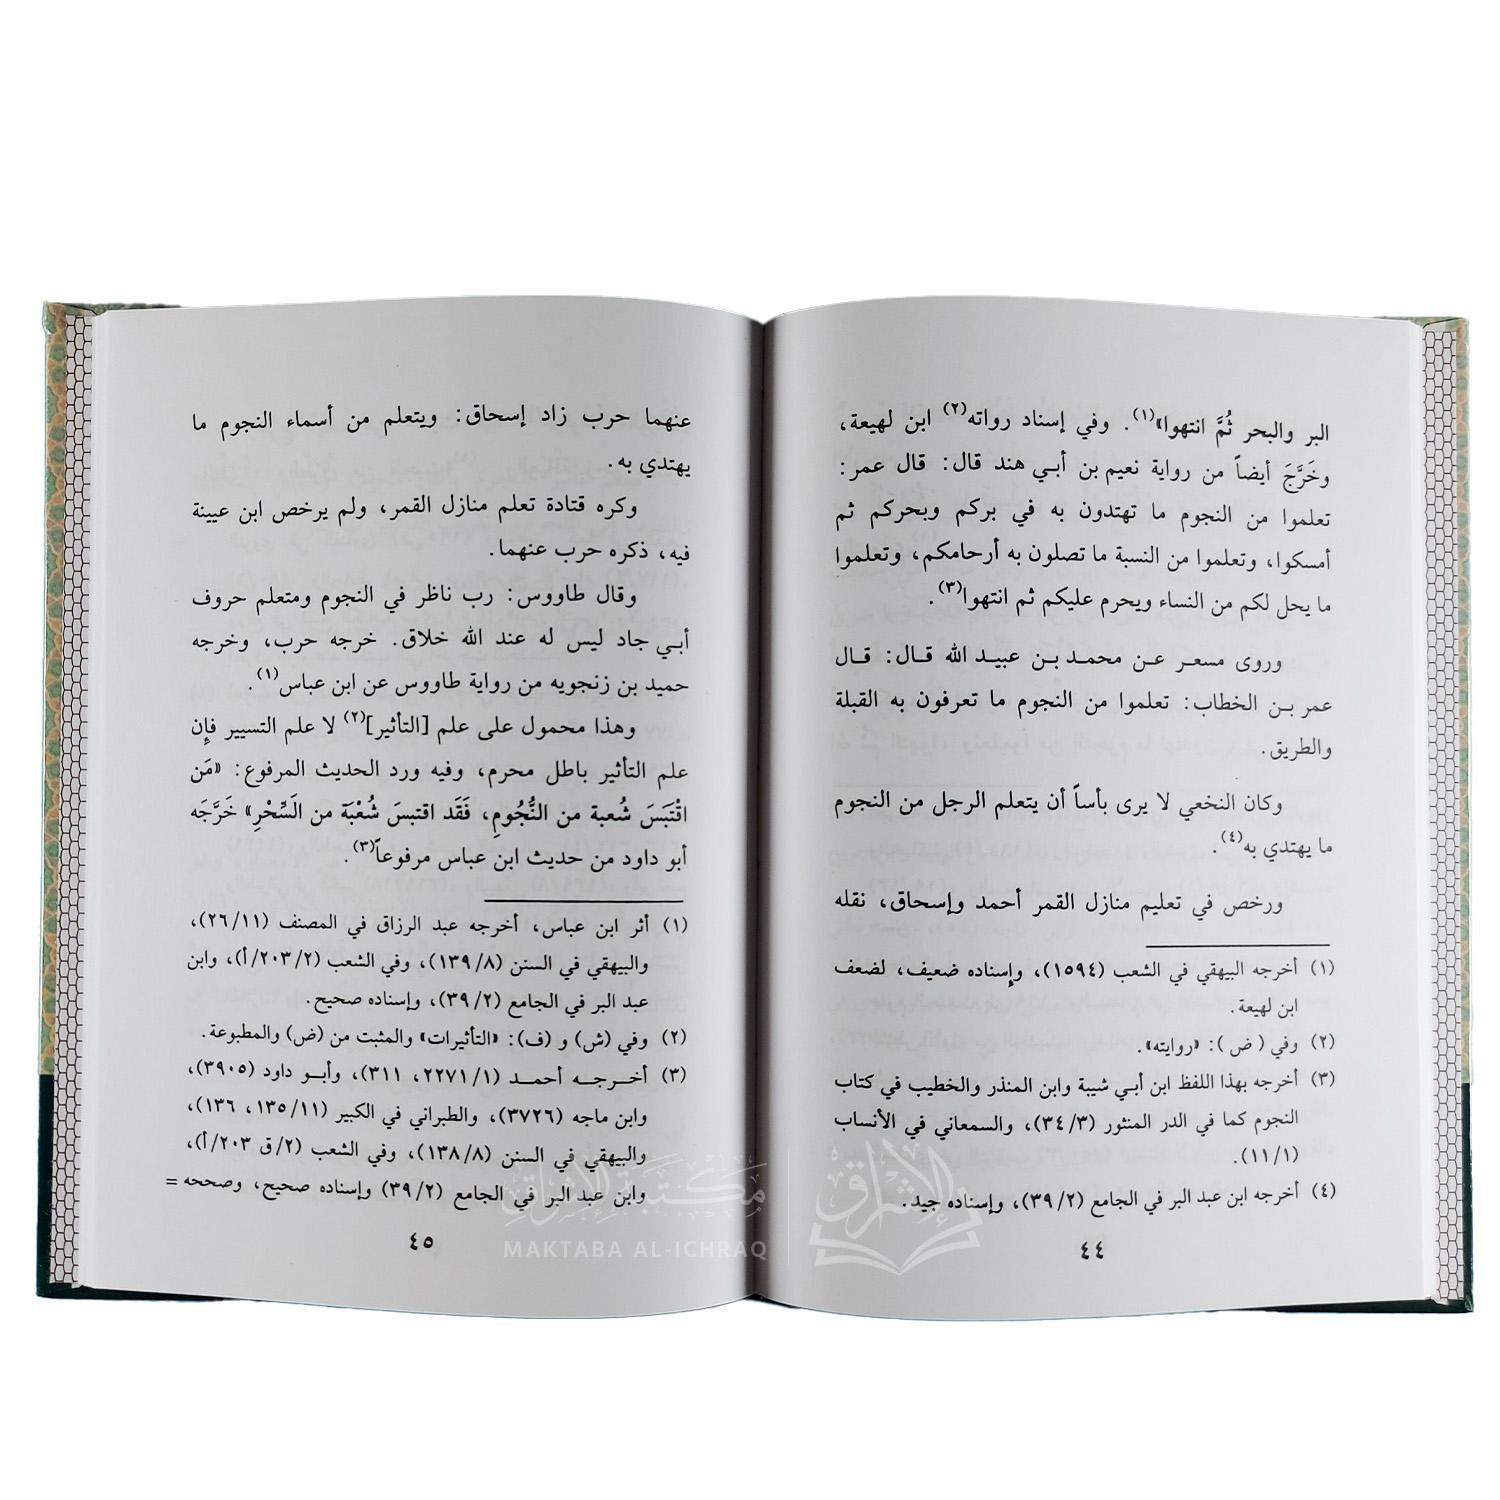 البر والبحر ثُمَّ انتهوا»(١). وفي إسناد رواته(٢) ابن لهيعة،
وخَرَّجَ أيضاً من رواية نعيم بن أبي هند قال: قال عمر:
تعلموا من النجوم ما تهتدون به في بركم وبحركم ثم
أمسكوا، وتعلموا من النسبة ما تصلون به أرحامكم، وتعلموا
ما يحل لكم من النساء ويحرم عليكم ثم انتهوا(٣).
وروى مسعر عن محمد بن عبيد الله قال: قال
عمر بن الخطاب: تعلموا من النجوم ما تعرفون به القبلة
والطريق.
وكان النخعي لا يرى بأساً أن يتعلم الرجل من النجوم
ما يهتدي به(٤).
ورخص في تعليم منازل القمر أحمد وإسحاق، نقله
(١) أخرجه البيهقي في الشعب (١٥٩٤)، وإسناده ضعيف، لضعف
ابن لهيعة.
(٢) وفي (ض): «روايته».
(٣) أخرجه بهذا اللفظ ابن أبي شيبة وابن المنذر والخطيب في كتاب
النجوم كما في الدر المنثور (٣٤/٣)، والسمعاني في الأنساب
(١١/١).
(٤) أخرجه ابن عبد البر في الجامع (٣٩/٢)، وإسناده جيد.
٤٤
عنهما حرب زاد إسحاق: ويتعلم من أسماء النجوم ما
يهتدي به.
وكره قتادة تعلم منازل القمر، ولم يرخص ابن عيينة
فيه، ذكره حرب عنهما.
وقال طاووس: رب ناظر في النجوم ومتعلم حروف
أبي جاد ليس له عند الله خلاق. خرجه حرب، وخرجه
حميد بن زنجويه من رواية طاووس عن ابن عباس(١).
وهذا محمول على علم [التأثير](٢) لا علم التسيير فإن
علم التأثير باطل محرم، وفيه ورد الحديث المرفوع: «مَن
اقْتَبَسَ شُعبة من النُّجُومِ، فَقَد اقتبسَ شُعْبَة من السِّحْرِ» خَرَّجَه
أبو داود من حديث ابن عباس مرفوعاً(٣).
(١) أثر ابن عباس، أخرجه عبد الرزاق في المصنف (٢٦/١١)،
والبيهقي في السنن (١٣٩/٨)، وفي الشعب (٢٠٣/٢/أ)، وابن
عبد البر في الجامع (٣٩/٢)، وإسناده صحيح.
(٢) وفي (ش) و (ف): «التأثيرات» والمثبت من (ض) والمطبوعة.
(٣) أخرجه أحمد (٢٢٧١/١، ٣١١)، وأبو داود (٣٩٠٥)،
وابن ماجه (٣٧٢٦)، والطبراني في الكبير (١٣٥/١١، ١٣٦)،
والبيهقي في السنن (١٣٨/٨)، وفي الشعب (٢/ق ٢٠٣/أ)،
وابن عبد البر في الجامع (٣٩/٢) وإسناده صحيح، وصححه =
٤٥
مكتبة الإشراق
MAKTABA AL-ICHRAQ
الإشراق